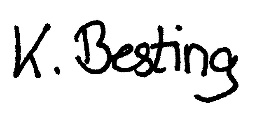 K. Besting